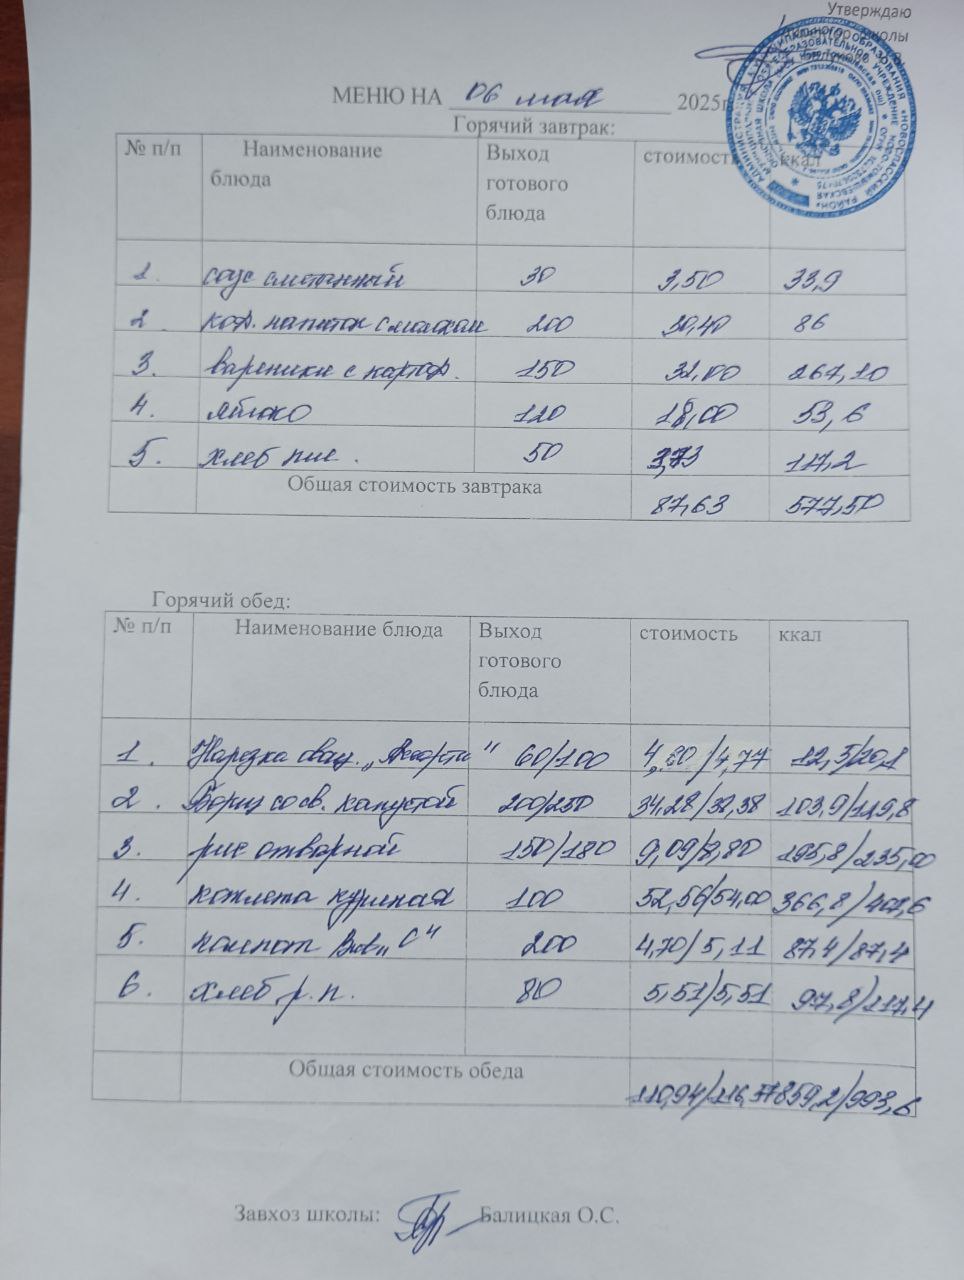 Утверждаю
Директор школы
МЕНЮ НА 06 мая 2025г
Горячий завтрак:
№ п/п Наименование блюда Выход готового блюда стоимость ккал
1. соус сметанный 30 3,50 33,9
2. коф. напиток с молоком 200 30,40 86
3. вареники с картоф. 150 32,00 267,10
4. яблоко 120 18,00 53,6
5. хлеб пше. 50 3,73 117,2
Общая стоимость завтрака 87,63 577,50
Горячий обед:
№ п/п Наименование блюда Выход готового блюда стоимость ккал
1. Нарезка овощ. „Ассорти" 60/100 4,80/4,77 12,5/20,1
2. Борщ со св. капустой 200/250 34,28/38,38 103,9/129,8
3. рис отварной 150/180 9,09/8,80 195,8/235,00
4. котлета куриная 100 52,56/54,00 366,8/403,6
5. компот Вит „С" 200 4,70/5,11 87,4/87,4
6. хлеб р.п. 80 5,51/5,51 97,8/117,4
Общая стоимость обеда 110,94/116,77 859,2/993,6
Завхоз школы: Балицкая О.С.